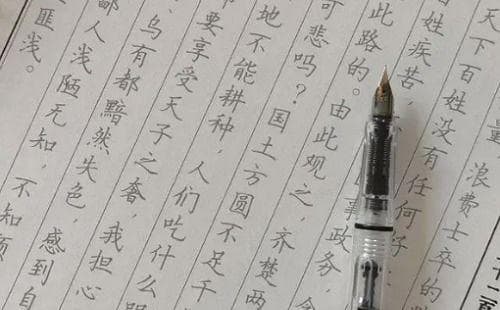 量 浪费士卒的
天下百姓没有任何好
百姓疾苦，
事政务，
此路的。由此观之，齐楚两
可悲吗？国土方圆不足千
地不能耕种 人们吃什么
要享受天子之奢，我担心
乌有都黯然失色，感到自
鄙人浅陋无知，不知
匪浅。